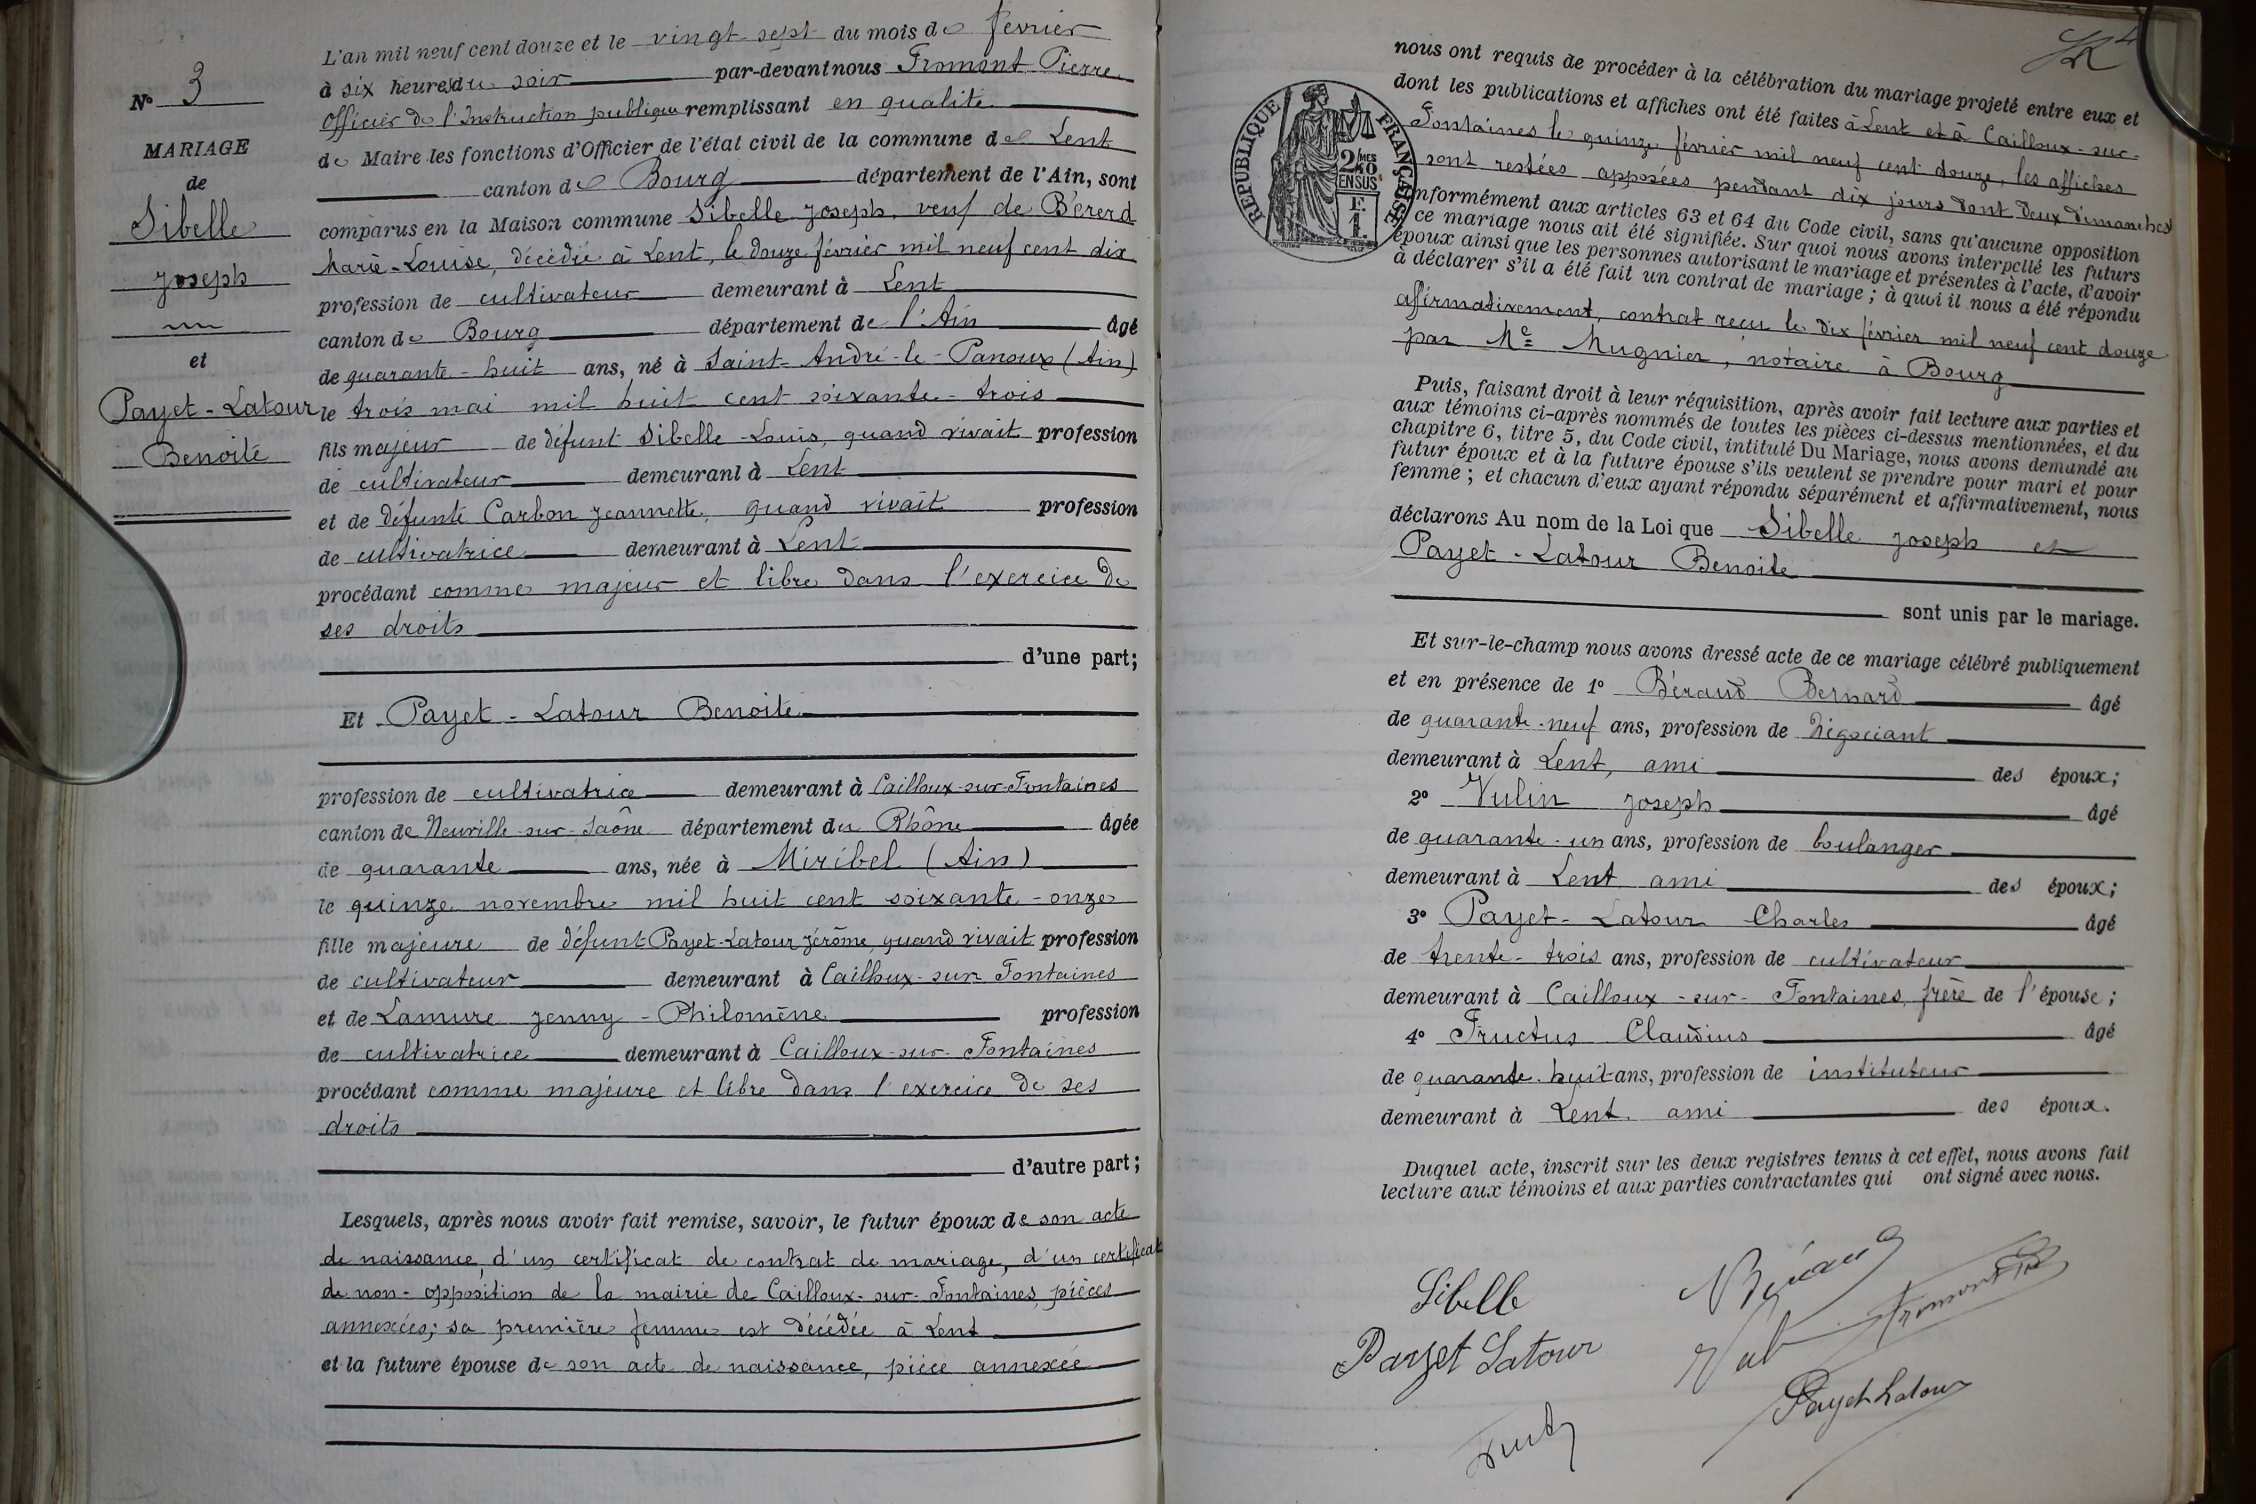 N° 3
MARIAGE
de
Sibelle
Joseph
et
Payet-Latour
Benoîte
L'an mil neuf cent douze et le vingt sept du mois de février
à six heures du soir par-devant nous Fromont Pierre
officier de l'Instruction publique remplissant en qualité
de Maire les fonctions d'Officier de l'état civil de la commune de Lent
canton de Bourg département de l'Ain, sont
comparus en la Maison commune Sibelle Joseph, veuf de Bererd
Marie-Louise, décédée à Lent, le douze février mil neuf cent dix
profession de cultivateur demeurant à Lent
canton de Bourg département de l'Ain âgé
de quarante-huit ans, né à Saint-André-le-Panoux (Ain)
le trois mai mil huit cent soixante-trois
fils majeur de défunt Sibelle Louis, quand vivait profession
de cultivateur demeurant à Lent
et de défunte Carbon Jeannette, quand vivait profession
de cultivatrice demeurant à Lent
procédant comme majeur et libre dans l'exercice de
ses droits
d'une part;
Et Payet-Latour Benoîte
profession de cultivatrice demeurant à Cailloux-sur-Fontaines
canton de Neuville-sur-Saône département du Rhône âgée
de quarante ans, née à Miribel (Ain)
le quinze novembre mil huit cent soixante-onze
fille majeure de défunt Payet-Latour Jérôme, quand vivait profession
de cultivateur demeurant à Cailloux-sur-Fontaines
et de Lamure Jenny-Philomène profession
de cultivatrice demeurant à Cailloux-sur-Fontaines
procédant comme majeure et libre dans l'exercice de ses
droits
d'autre part;
Lesquels, après nous avoir fait remise, savoir, le futur époux de son acte
de naissance, d'un certificat de contrat de mariage, d'un certificat
de non-opposition de la mairie de Cailloux-sur-Fontaines, pièces
annexées; sa première femme est décédée à Lent
et la future épouse de son acte de naissance, pièce annexée
4
nous ont requis de procéder à la célébration du mariage projeté entre eux et
dont les publications et affiches ont été faites à Lent et à Cailloux-sur-
Fontaines le quinze février mil neuf cent douze, les affiches
sont restées apposées pendant dix jours dont deux dimanches
RÉPUBLIQUE FRANÇAISE
2/MES 40 EN SUS
F. 1.
conformément aux articles 63 et 64 du Code civil, sans qu'aucune opposition
ce mariage nous ait été signifiée. Sur quoi nous avons interpellé les futurs
époux ainsi que les personnes autorisant le mariage et présentes à l'acte, d'avoir
à déclarer s'il a été fait un contrat de mariage; à quoi il nous a été répondu
affirmativement, contrat reçu le dix février mil neuf cent douze
par Me Mugnier, notaire à Bourg
Puis, faisant droit à leur réquisition, après avoir fait lecture aux parties et
aux témoins ci-après nommés de toutes les pièces ci-dessus mentionnées, et du
chapitre 6, titre 5, du Code civil, intitulé Du Mariage, nous avons demandé au
futur époux et à la future épouse s'ils veulent se prendre pour mari et pour
femme; et chacun d'eux ayant répondu séparément et affirmativement, nous
déclarons Au nom de la Loi que Sibelle Joseph et
Payet-Latour Benoite
sont unis par le mariage.
Et sur-le-champ nous avons dressé acte de ce mariage célébré publiquement
et en présence de 1° Béraud Bernard âgé
de quarante-neuf ans, profession de Négociant
demeurant à Lent, ami des époux;
2° Vulin Joseph âgé
de quarante-un ans, profession de boulanger
demeurant à Lent ami des époux;
3° Payet-Latour Charles âgé
de trente-trois ans, profession de cultivateur
demeurant à Cailloux-sur-Fontaines, frère de l'épouse;
4° Fructus Claudius âgé
de quarante-huit ans, profession de instituteur
demeurant à Lent, ami des époux.
Duquel acte, inscrit sur les deux registres tenus à cet effet, nous avons fait
lecture aux témoins et aux parties contractantes qui ont signé avec nous.
Sibelle
Béraud
Fromont
Payet Latour
Payet Latour